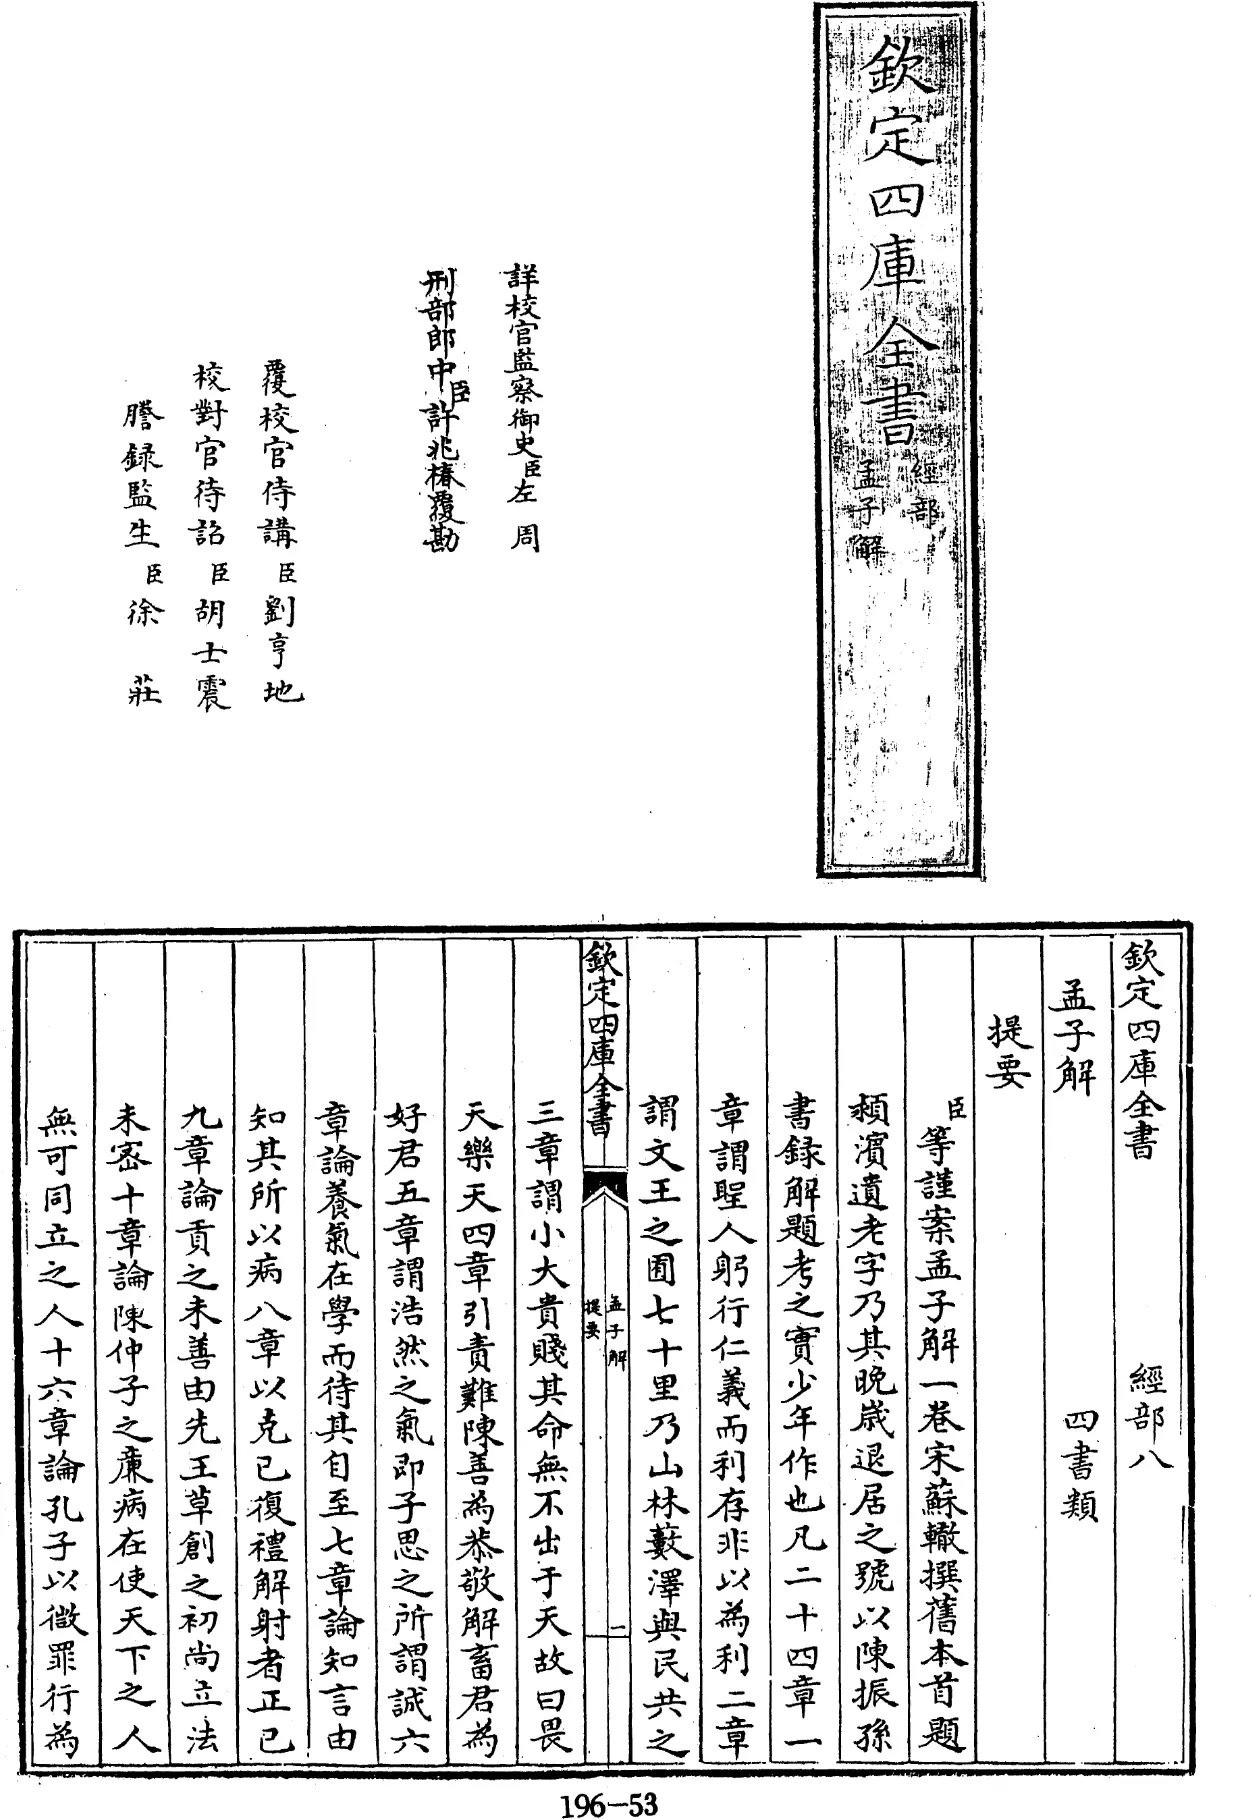 欽定四庫全書
經部
孟子解
詳校官監察御史臣左周
刑部郎中臣許兆椿覆勘
覆校官侍講臣劉亨地
校對官待詔臣胡士震
謄録監生臣徐莊
欽定四庫全書 經部八
孟子解 四書類
提要
臣等謹案孟子解一卷宋蘇轍撰舊本首題
頴濱遺老字乃其晩歳退居之號以陳振孫
書録解題考之實少年作也凡二十四章一
章謂聖人躬行仁義而利存非以為利二章
謂文王之囿七十里乃山林藪澤與民共之
欽定四庫全書
孟子解
提要
一
三章謂小大貴賤其命無不出于天故曰畏
天樂天四章引責難陳善為恭敬解畜君為
好君五章謂浩然之氣即子思之所謂誠六
章論養氣在學而待其自至七章論知言由
知其所以病八章以克己復禮解射者正己
九章論貢之未善由先王草創之初尚立法
未宻十章論陳仲子之亷病在使天下之人
無可同立之人十六章論孔子以微罪行為
196-53